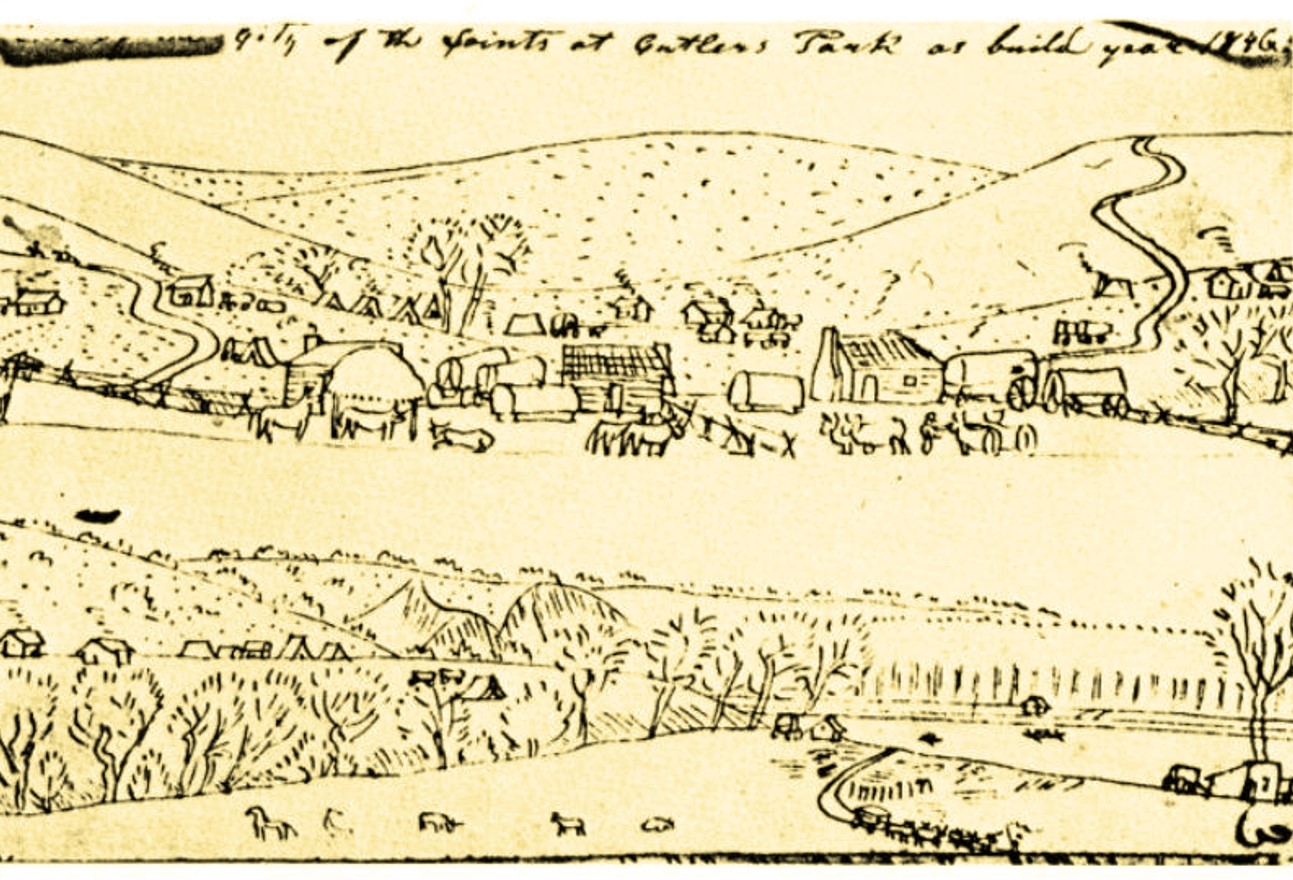 City of the Saints at Cutlers Park as build year 1846